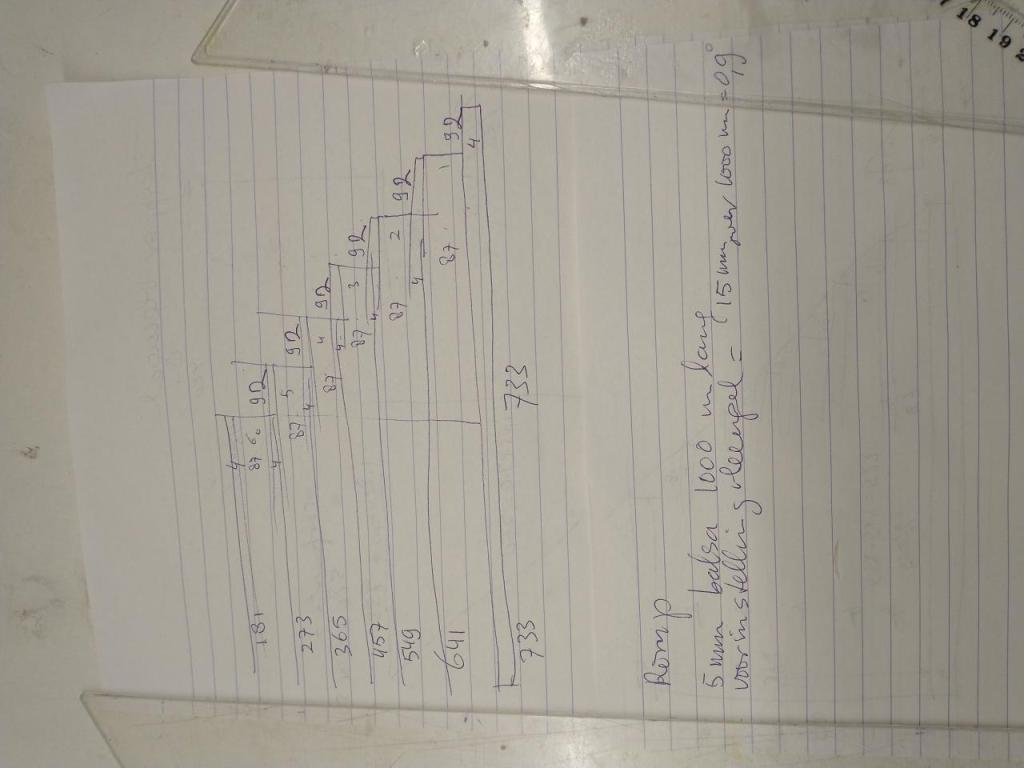 4
87 6 92
181
4
87 5 92
273
4
87 4 92
365
4
87 3 92
457
4
87 2 92
549
4
87 1 92
641
4
733 733
Romp
5 mm balsa 1000 m lang
voorinstelling vleugel = 15 mm per 1000 mm = 0,9°
17 18 19 2